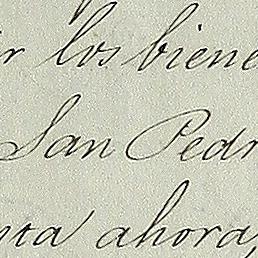 r los biene
San Pedr
nta ahora,